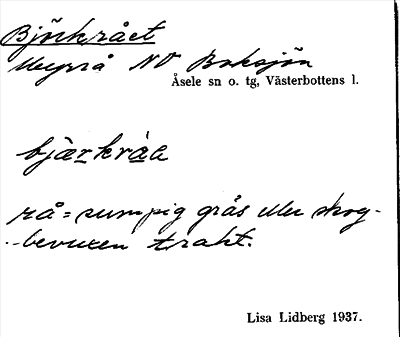 Björkrået
Myrrå NO Boksjön
Åsele sn o. tg, Västerbottens l.
bjärkråa
rå = sumpig gräs eller skog-
-bevuxen trakt.
Lisa Lidberg 1937.